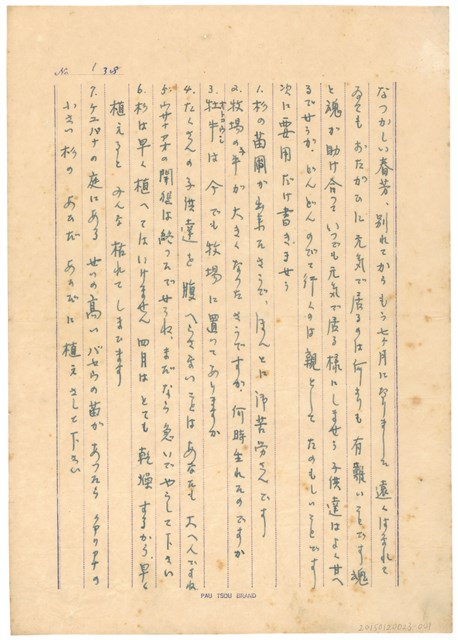 No. 1 3/8
なつかしい春芳、別れてからもう七ヶ月になりました 遠くはなれて
ゐてもおたがひに元気で居るのは何よりも有難いことです 魂
と魂が助け合っていつでも元気で居る様にしませう 子供達はよく甘へ
るでせうが、どんどんのびて行くのは親としてたのもしいことです
次に要用だけ書きませう
1. 杉の苗圃が出来たさうで ほんとに御苦労さんです
2. 牧場の牛が大きくなったさうですが、何時生れたのですか
3. 牡牛は今でも牧場に置いてありますか
4. たくさんの子供達を腹へらさないことはあなたも大へんですね
5. の開墾は終ったでせうね、まだなら急いでやらして下さい
6. 杉は早く植へてはいけません 四月はとても乾燥するから、早く
植えると みんな枯れてしまひます
7. の庭にある せの高いバせうの苗があったら の
小さい杉の あひだ あひだに植えさして下さい
PAU TSOU BRAND
20150120023-001